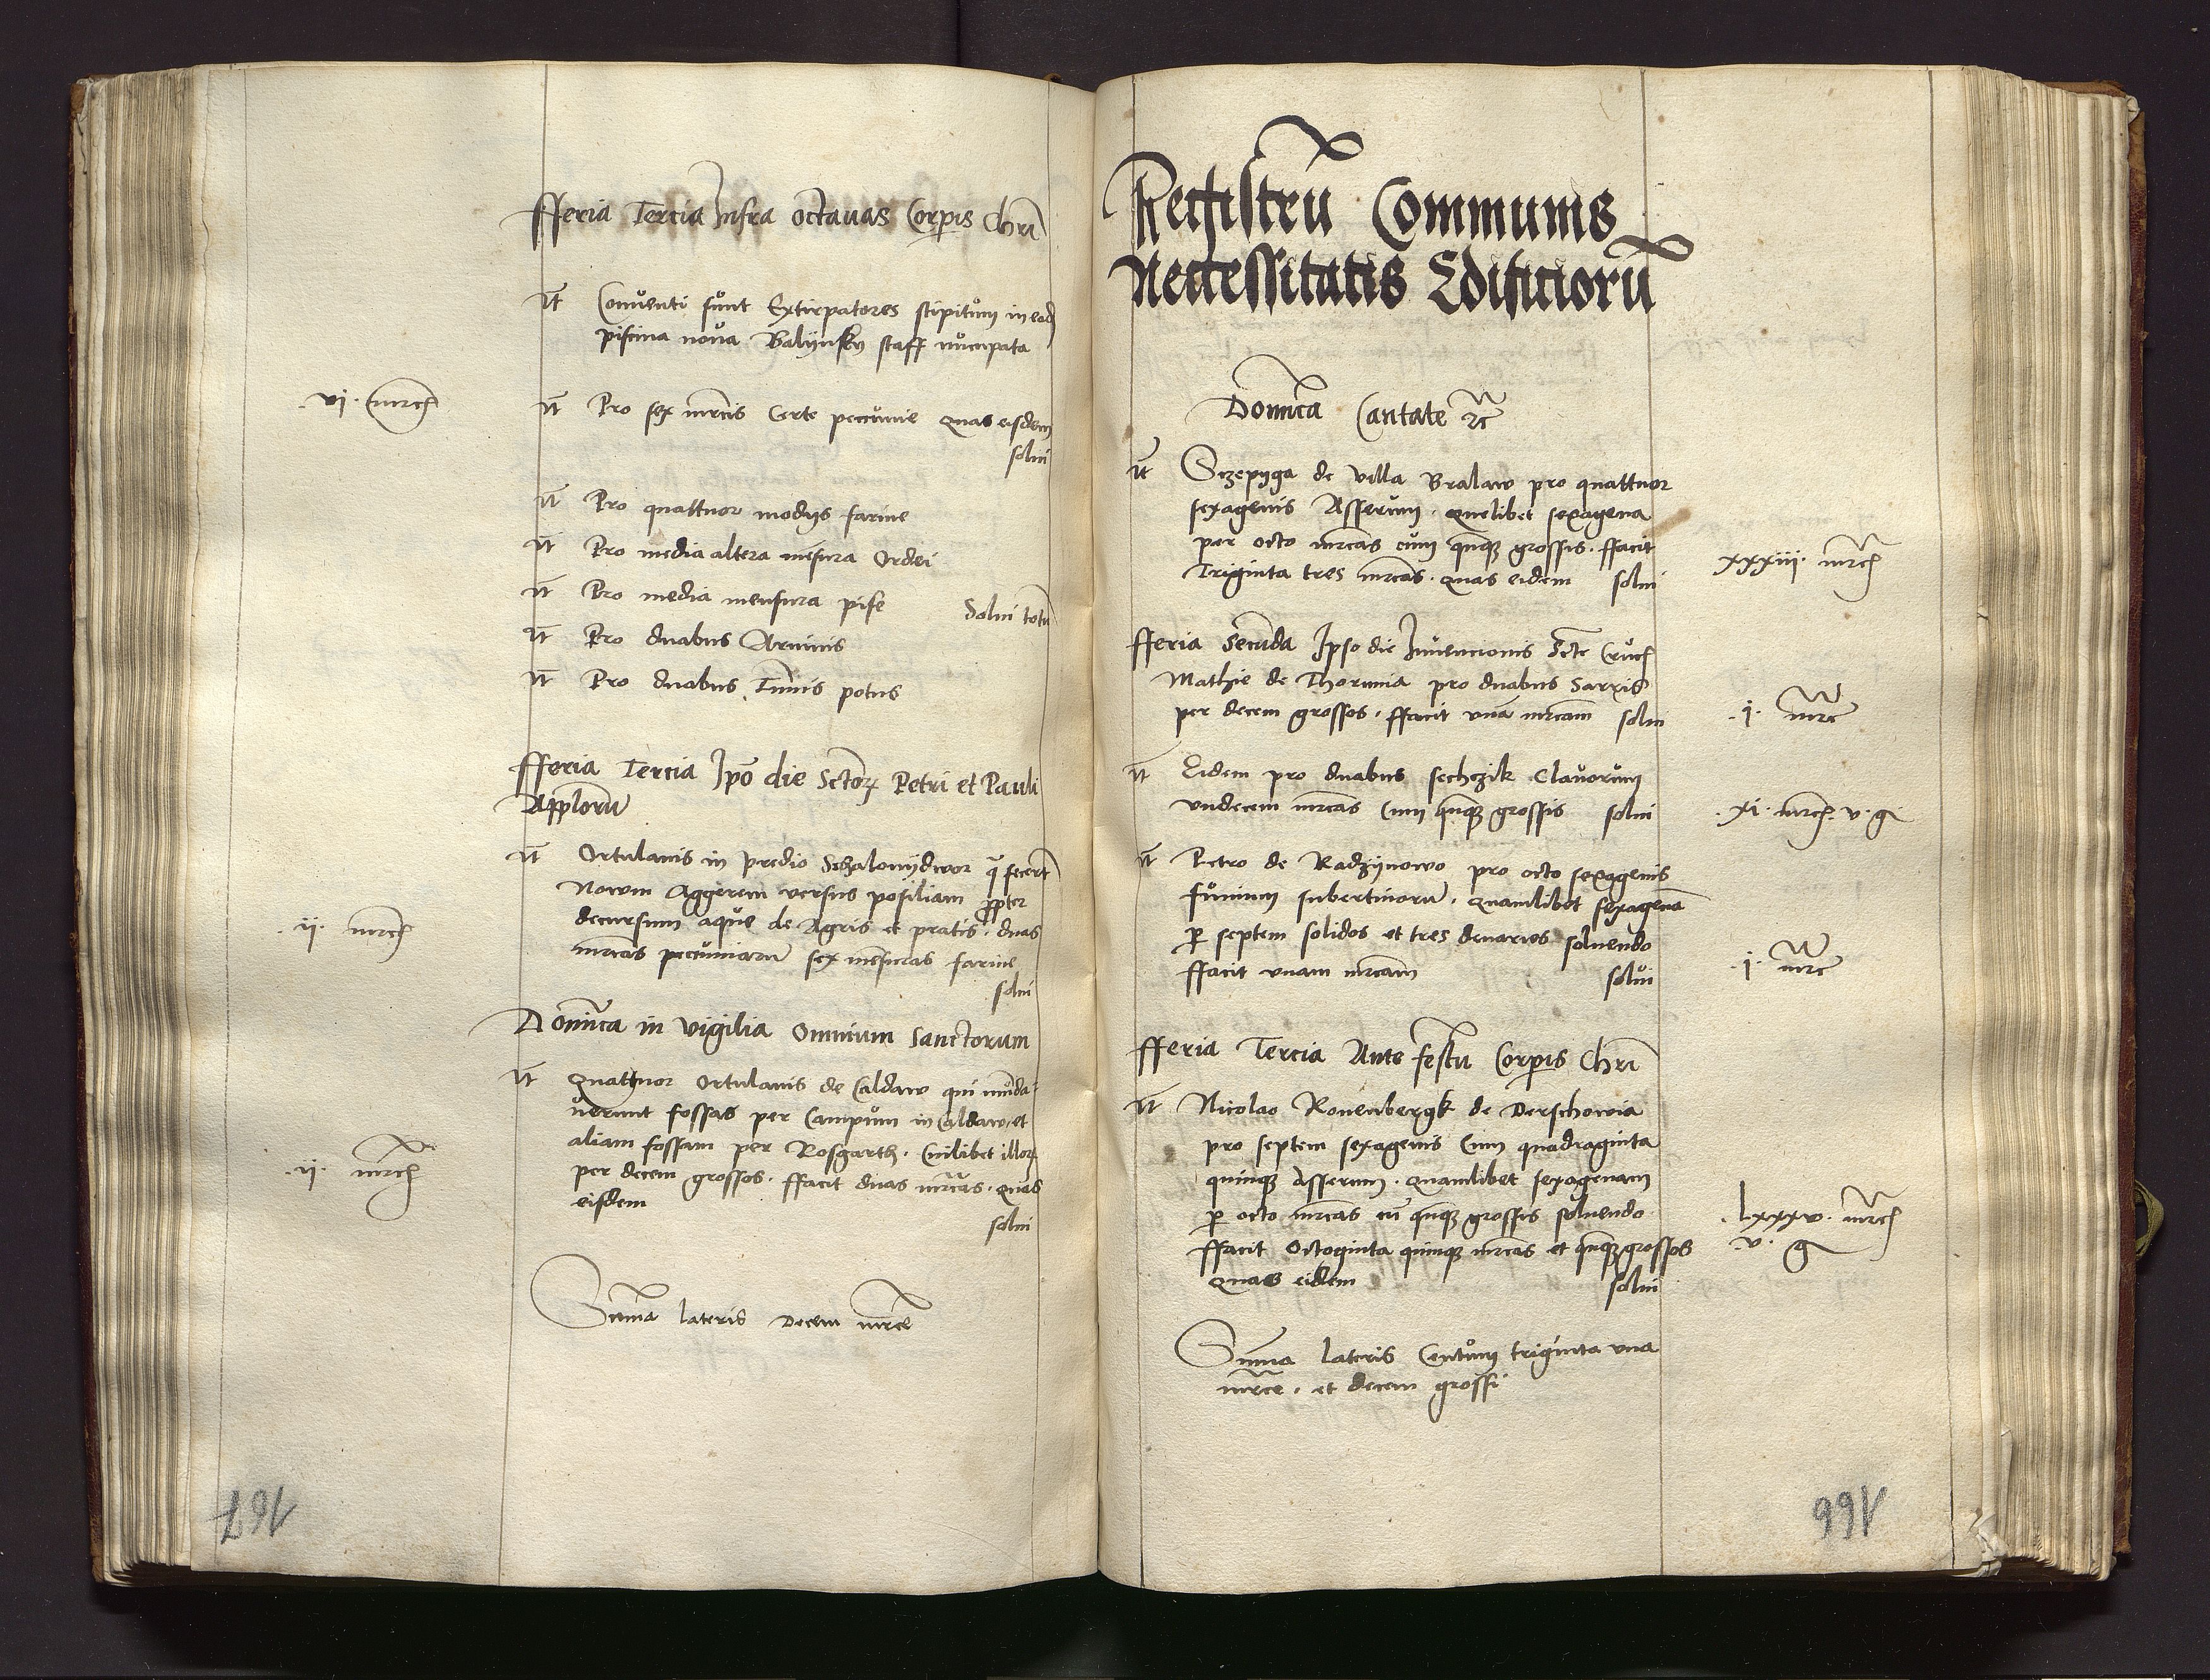 fferia Tercia Infra octauas Corpis Chri
It Conuenti sunt Extirpatores stipitum in ead
piscina noua Balijnsky staff nucupata
.vi. mrc It Pro sex mrcis Certe peccunie quas eisdem
solui
It Pro quattuor modijs farine
It Pro media altera mesura Ordei
It Pro media mensura pise Solui totu
It Pro duabus Aruinis
It Pro duabus Tunis potus
fferia Tercia Ipo die Sctorz Petri et Pauli
Applorum
It Ortulanis in predio Schalonijdwor q fecert
Nowm Aggerem versus posiliam ppter
.ii. mrc decursum aque de Agris et pratis . duas
mrcas peccuniaru sex mesuras farine
solui
Dominca in vigilia omnium sanctorum
It quattuor Ortulanis de Caldaw qui muda-
uerunt fossas per Campum in Caldaw et
aliam fossam per Rosgarth . Cuilibet illorz
.ii. mrc per decem grossos . ffacit duas mrcas . quas
eisdem
solui
Suma lateris Decem mrce
167
Registru Communis
Necessitatis Edificioru
Dominca Cantate rc
It Sczepyga de villa Bralaw pro quattuor
sexagenis Asserum . quelibet sexagena
per octo mrcas cum quqz grossis . ffacit
Triginta tres mrcas . quas eidem solui
xxxiii . mrc
fferia Secunda Ipso die Inuencionis Scte Cruc
Mathie de Thorunia pro duabus Sarris
per decem grossos . ffacit vna mrcam solui
.i. mrc
It Eidem pro duabus sechczik Clauorum
vndecem mrcas Cum quqz grossis solui
.xi. mrc v. g
It Petro de Radzijnowo pro octo sexagenis
funium subertinoru . quamlibet sexagena
p septem solidos et tres denarios soluendo
ffacit vnam mrcam solui
.i. mrc
fferia Tercia Ante festu Corpis Chri
It Nicolao Ronenbergk de Derschowia
pro septem sexagenis Cum quadraginta
quinqz Asserum . quamlibet sexagenam
p octo mrcas cu quqz grossis soluendo
ffacit Octoginta quinqz mrcas et quqz grossos
quas eidem solui
.lxxxv. mrc
.v. g
Suma lateris Centum triginta vna
mrce . et decem grossi
166